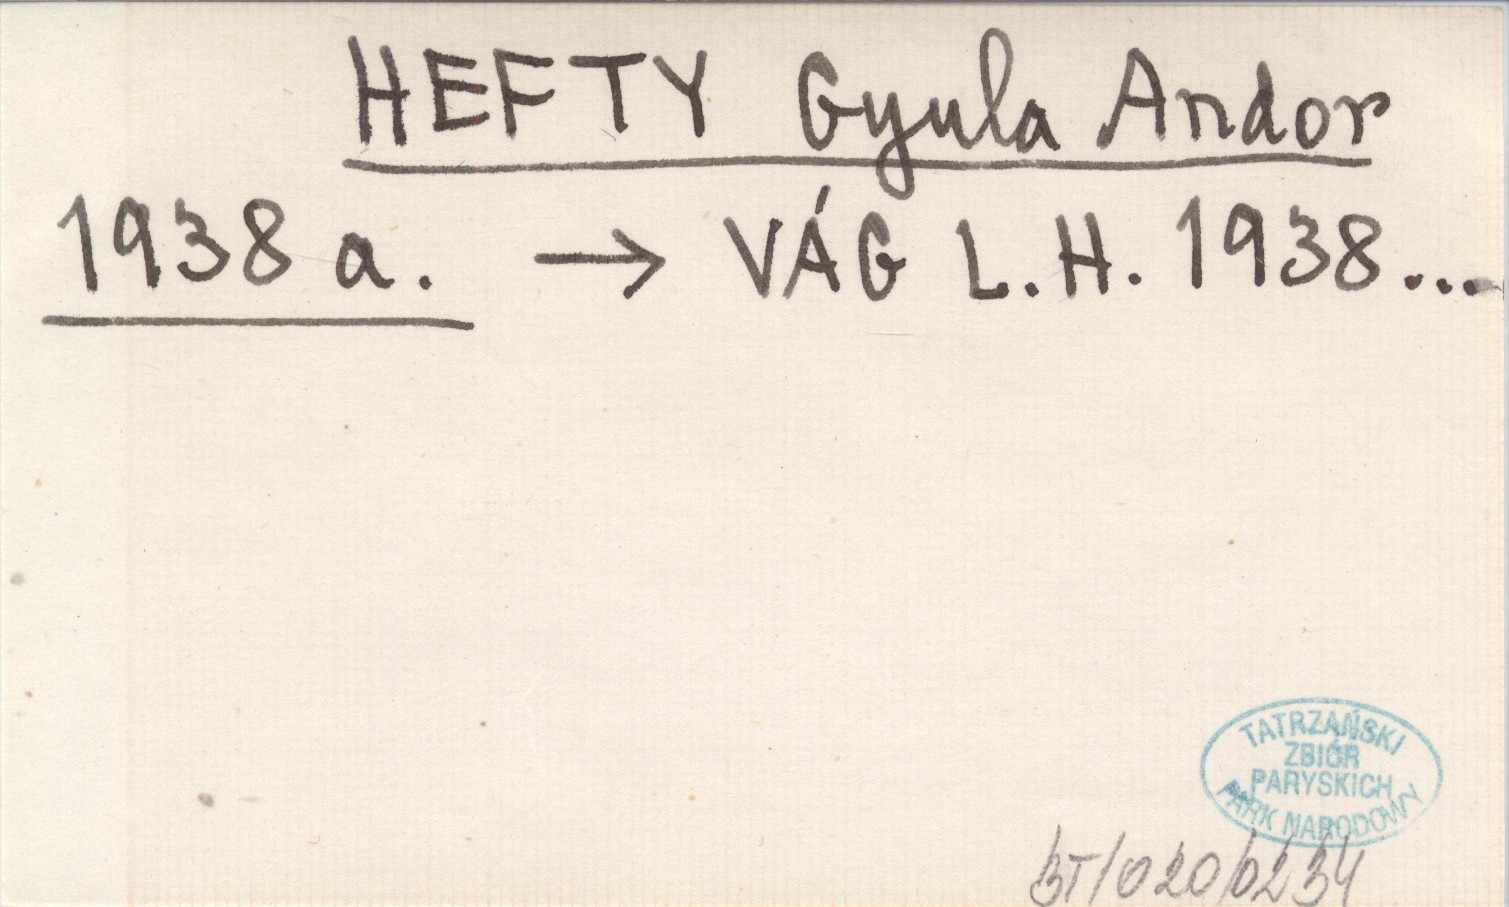 HEFTY Gyula Andor
1938 a. → VÁG L.H. 1938...
TATRZAŃSKI
ZBIÓR
PARYSKICH
PARK NARODOWY
BT/020/0234